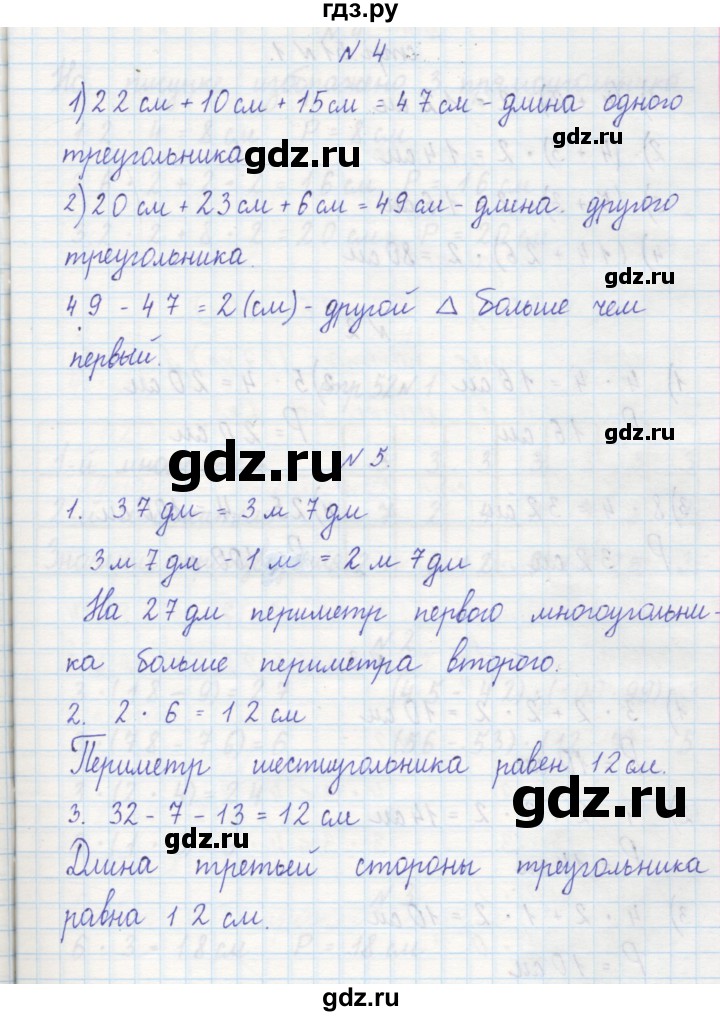 гдз.ру
N 4
1) 22 см + 10 см + 15 см = 47 см - длина одного
треугольника
gdz.ru
gdz.ru
2) 20 см + 23 см + 6 см = 49 см - длина другого
треугольника.
gdz.ru
49 - 47 = 2 (см) - другой Δ больше чем
первый.
gdz.ru
gdz.ru
N 5.
1. 37 дм = 3 м 7 дм
3 м 7 дм - 1 м = 2 м 7 дм
На 27 дм периметр первого многоугольни-
ка больше периметра второго.
2. 2 · 6 = 12 см
Периметр шестиугольника равен 12 см.
gdz.ru
3. 32 - 7 - 13 = 12 см
gdz.ru
Длина третьей стороны треугольника
равна 12 см.
gdz.ru
gdz.ru